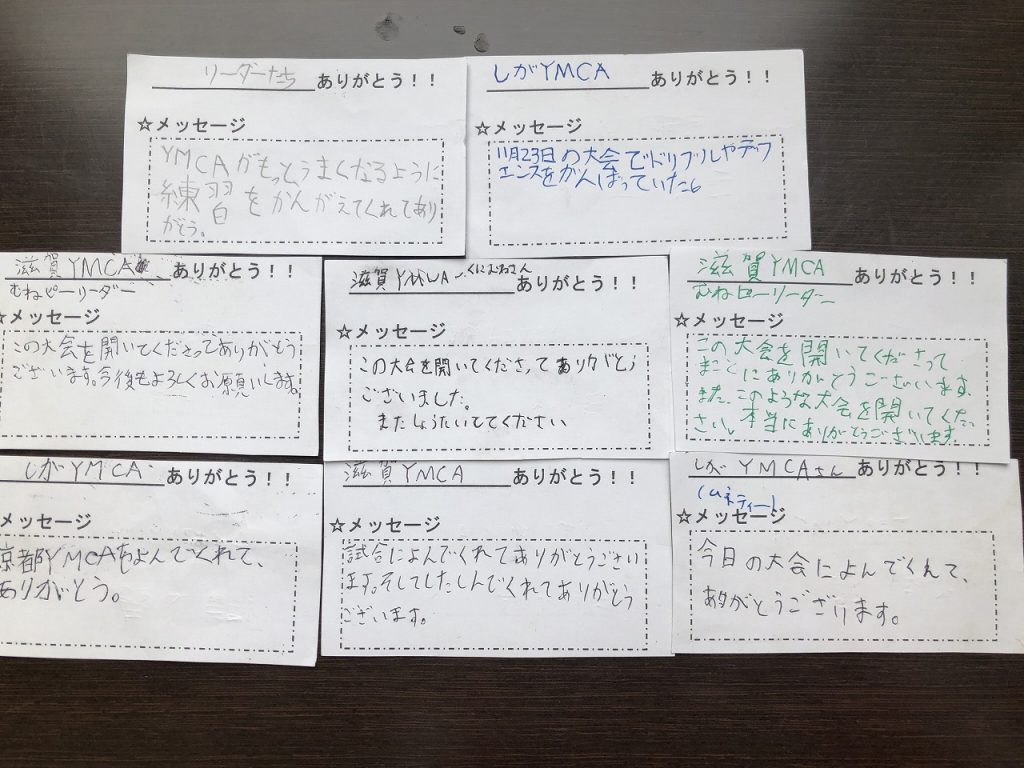 リーダーたち ありがとう！！
☆メッセージ
YMCAがもっとうまくなるように
練習をかんがえてくれてあり
がとう。
しがYMCA ありがとう！！
☆メッセージ
11月23日の大会でドリブルやディフ
ェンスをがんばっていた
滋賀YMCA ありがとう！！
むねピーリーダー
☆メッセージ
この大会を開いてくださってありがとう
ございます。今後もよろしくお願いします。
滋賀YMCA くにむねさん ありがとう！！
☆メッセージ
この大会を開いてくださって ありがとう
ございました。
またしょうたいしてください
滋賀YMCA ありがとう！！
むねピーリーダー
☆メッセージ
この大会を開いてくださって
まことにありがとうございます。
また、このような大会を開いてくだ
さい。本当にありがとうございます。
しがYMCA ありがとう！！
メッセージ
京都YMCAをよんでくれて、
ありがとう。
滋賀YMCA ありがとう！！
☆メッセージ
試合によんでくれてありがとうござい
ます。そしてしたしんでくれてありがとう
ございます。
しがYMCAさん ありがとう！！
(ムネティー)
☆メッセージ
今日の大会によんでくれて、
ありがとうございます。